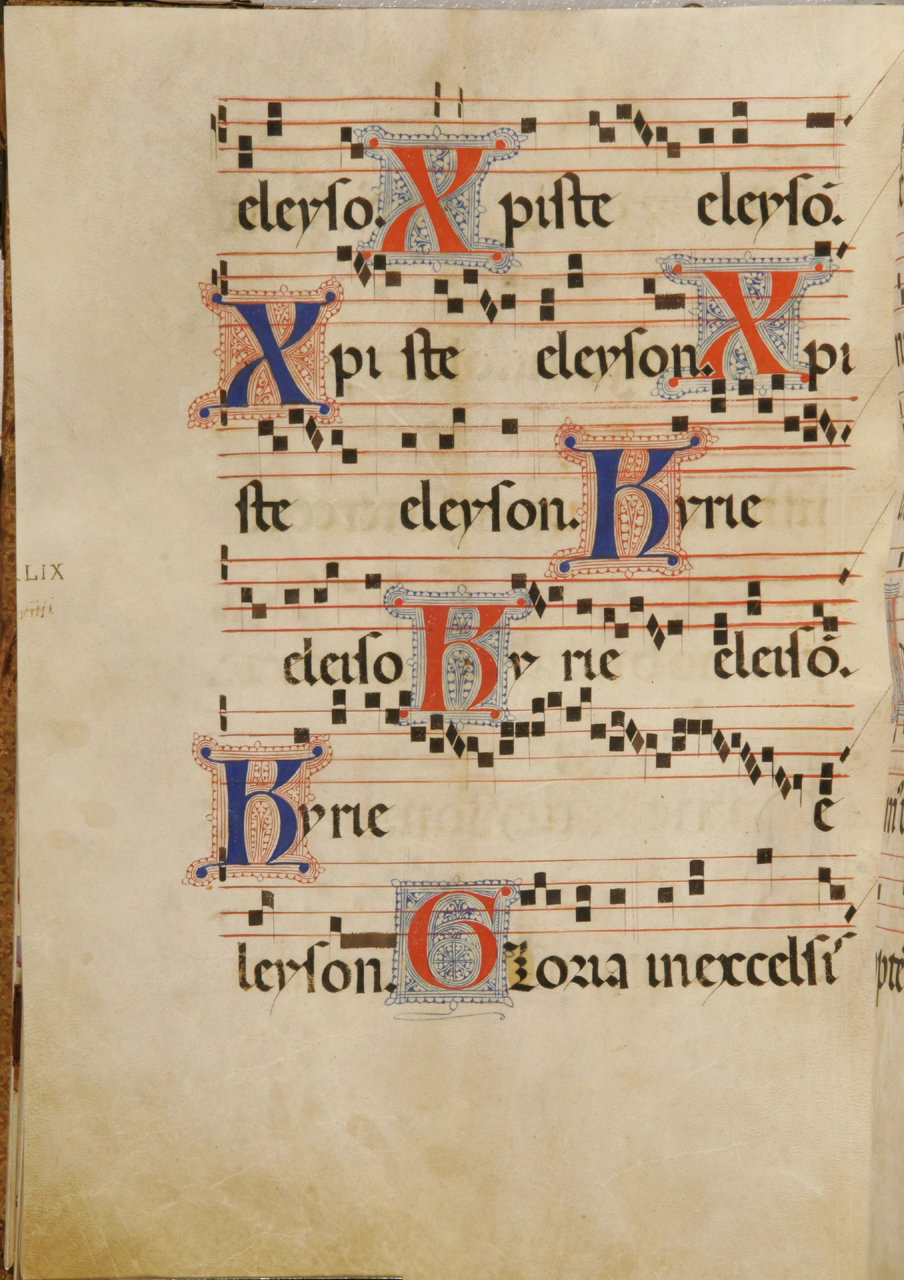 eleyſo. Xpiſte eleyſō.
Xpi ſte eleyſon. Xpi
ſte eleyſon. Kyrie
LIX
viiii
eleiſo Ky rie eleiſō.
Kyrie e
leyſon. Gloria in excelſi